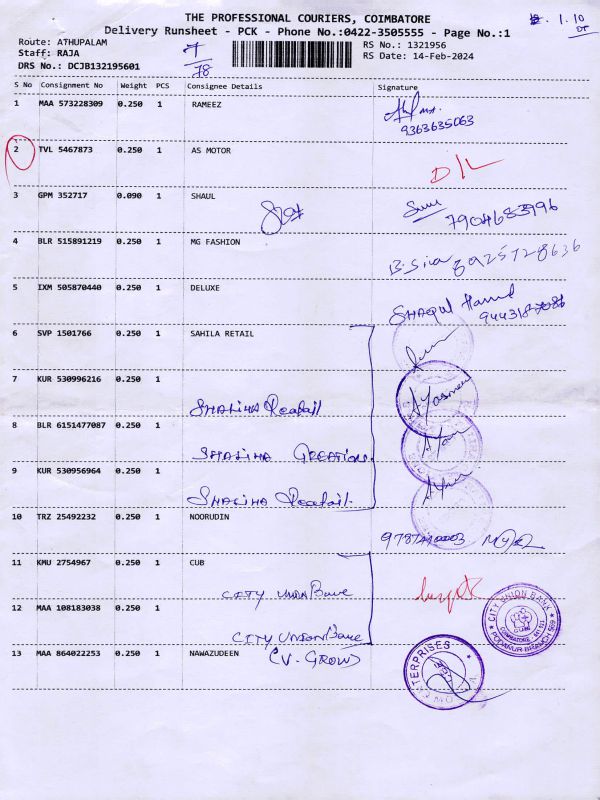 THE PROFESSIONAL COURIERS, COIMBATORE
Delivery Runsheet - PCK - Phone No.:0422-3505555 - Page No.:1
1.10
Route: ATHUPALAM
Staff: RAJA
DRS No.: DCJB132195601
7
78
RS No.: 1321956
RS Date: 14-Feb-2024
S No Consignment No Weight PCS Consignee Details Signature
1 MAA 573228309 0.250 1 RAMEEZ
9363635063
2 TVL 5467873 0.250 1 AS MOTOR D/L
3 GPM 352717 0.090 1 SHAUL 7904683996
4 BLR 515891219 0.250 1 MG FASHION B.Siva 8925728636
5 IXM 505870440 0.250 1 DELUXE SHAQUL Hamd
6 SVP 1501766 0.250 1 SAHILA RETAIL
7 KUR 530996216 0.250 1
SHALIHA Reatail AYasmeen
8 BLR 6151477087 0.250 1
SHALIHA CREATION
9 KUR 530956964 0.250 1
SHALIHA Reatail
10 TRZ 25492232 0.250 1 NOORUDIN
11 KMU 2754967 0.250 1 CUB
CITY UNION Bank
12 MAA 108183038 0.250 1
CITY UNION Bank
CITY UNION BANK
COIMBATORE - 641 021
PODANUR BRANCH 569
13 MAA 864022253 0.250 1 NAWAZUDEEN (V. GROW)
ENTERPRISES